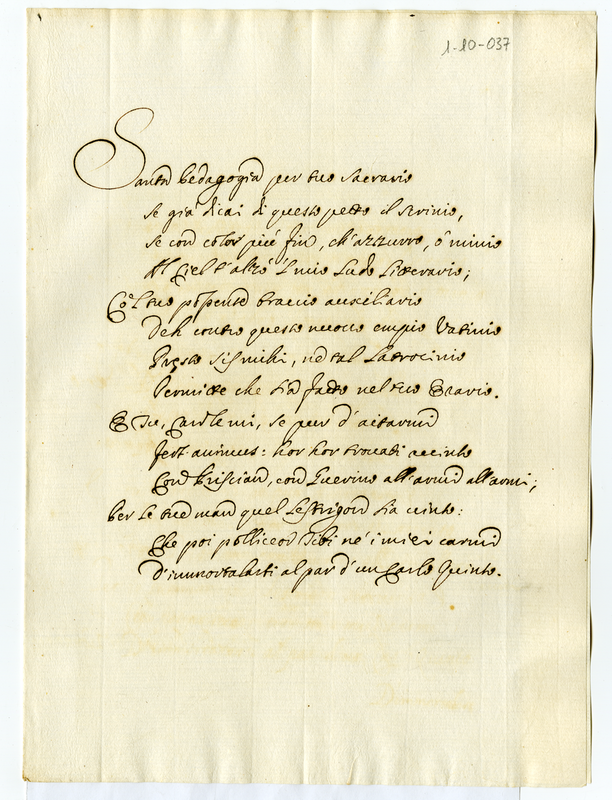 1-10-037
Santa Pedagogia per tuo Sacrario
se già dicai di questo petto il scrinio,
se con color più fin, ch'azzurro, ò minio
Al Ciel t'alzò 'l mio Ludo Litterario;
Co'l tuo potente braccio auxiliario
Deh contro questo nuovo empio Vatinio
Presto sis mihi, nè tal Latrocinio
Permitte che sia fatto nel tuo Erario.
E Tu, Carole mi, se pur d'aitarmi
fert animus: hor hor trovati accinto
Con Priscian, con Guerino all'armi all'armi;
Per le tue man quel Lestrigon sia vinto:
Che poi polliceor Tibi né i miei carmi
D'immortalarti al par d'un Carlo Quinto.